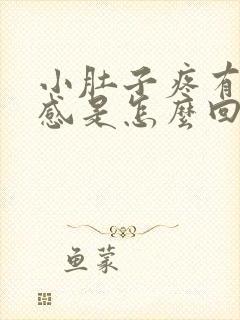 小肚子疼有
感是怎麼回
鱼蒙